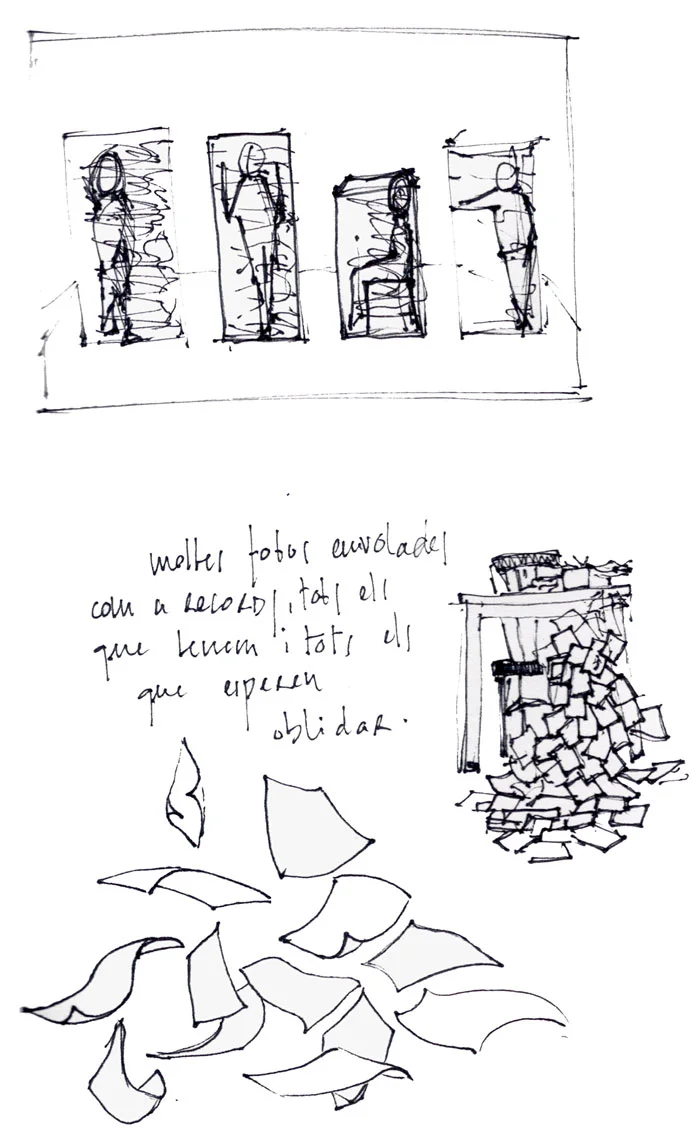 moltes fotos enrolades
com a records, tots els
que tenem i tots els
que esperen
oblidar.